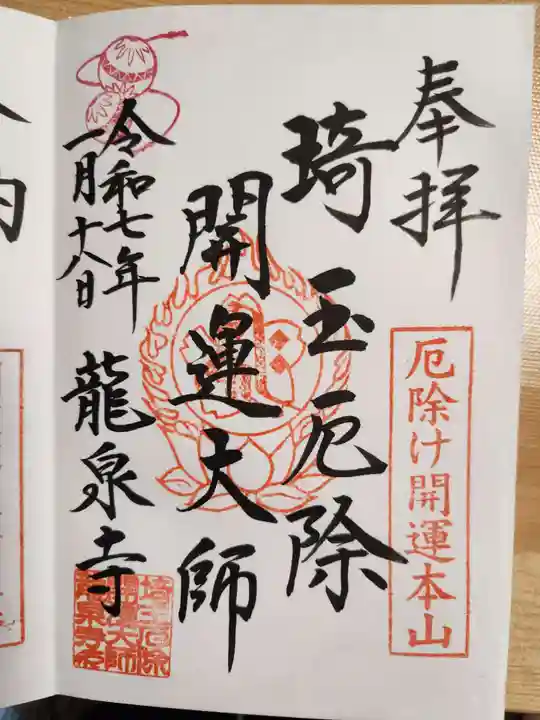 奉拝
厄除け開運本山
琦玉厄除
開運大師
令和七年
一月十八日
龍泉寺
埼玉厄除
開運大師
龍泉寺印